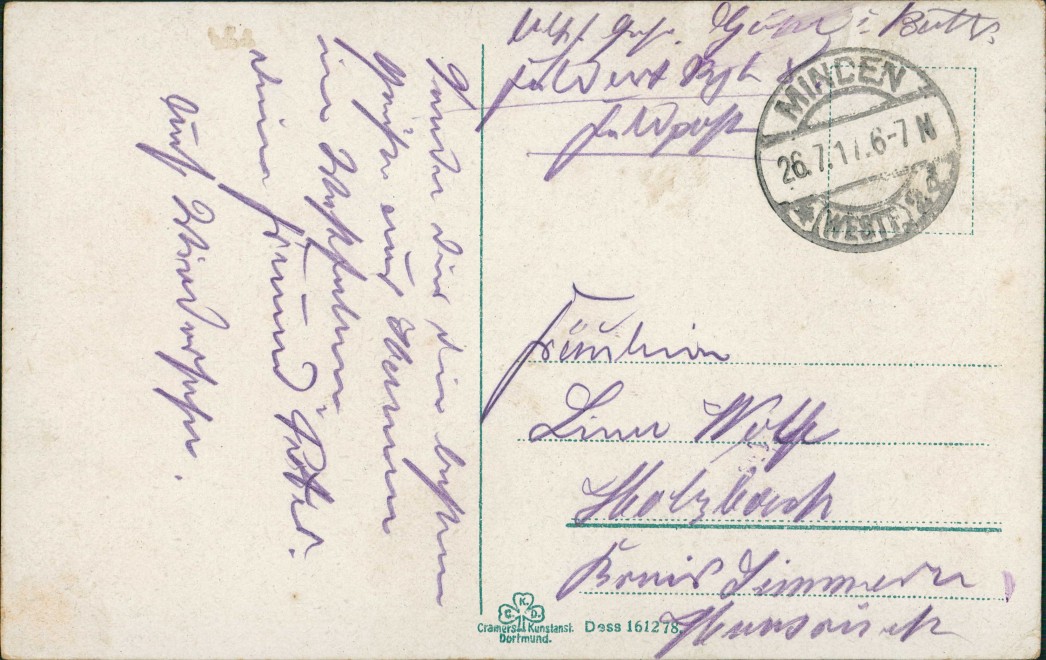 Sende dir die besten
Grüße aus
in Westfalen
deine Freund
Auf Wiedersehen.
Feldart
Feldpost
MINDEN
26.7.17.6-7 N
(WESTF.)
Fräulein
Line Wolf
Holzbach
Kreis Simmern
Hunsrück
K.
C. D.
Cramers Kunstanst.
Dortmund.
Dess 161278.